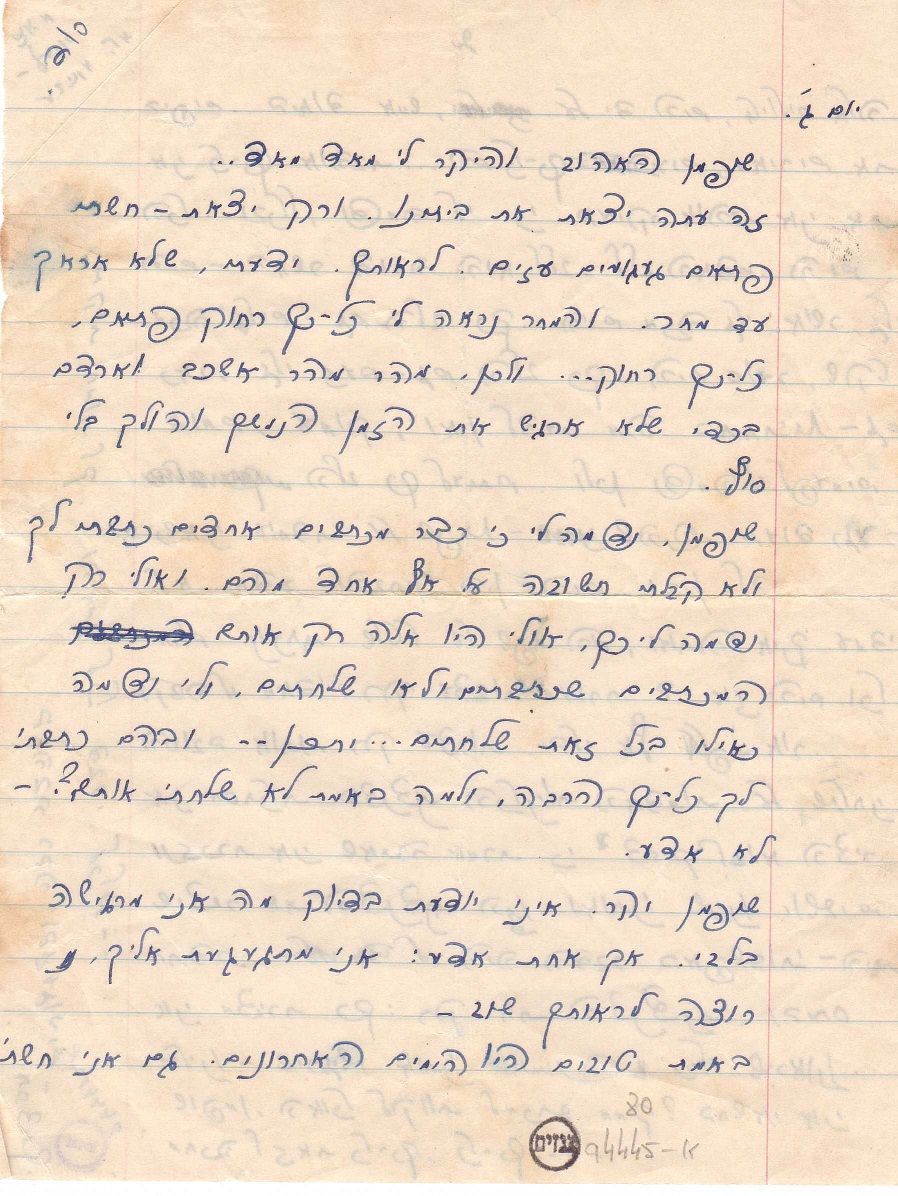 יום ג׳.
שופמן האהוב והיקר לי מאד מאד..
זה עתה יצאת את ביתנו. ורק יצאת – חשתי
פתאום געגועים עזים. לראותך. ידעתי, שלא אראך
עד מחר. והמחר נראה לי כל-כך רחוק פתאום,
כל-כך רחוק... ולכן, מהר מהר אשכב וארדם
בכדי שלא ארגיש את הזמן הנמשך והולך בלי
סוף.
שופמן, נדמה לי כי כבר מכתבים אחדים כתבתי לך
ולא קבלתי תשובה על אף אחד מהם. ואולי רק
נדמה לי כך, אולי היו אלה רק אותם
המכתבים שכתבתים ולא שלחתים, ולי נדמה
כאילו בכל זאת שלחתים... יתכן -- ובהם כתבתי
לך כל-כך הרבה, ולמה באמת לא שלחתי אותם? –
לא אדע.
שופמן יקר. איני יודעת בדיוק מה אני מרגישה
בלבי. אך אחת אדע: אני מתגעגעת אליך, ו
רוצה לראותך שוב –
באמת טובים היו הימים האחרונים. גם אני חשתי
80
גנזים
94445-א